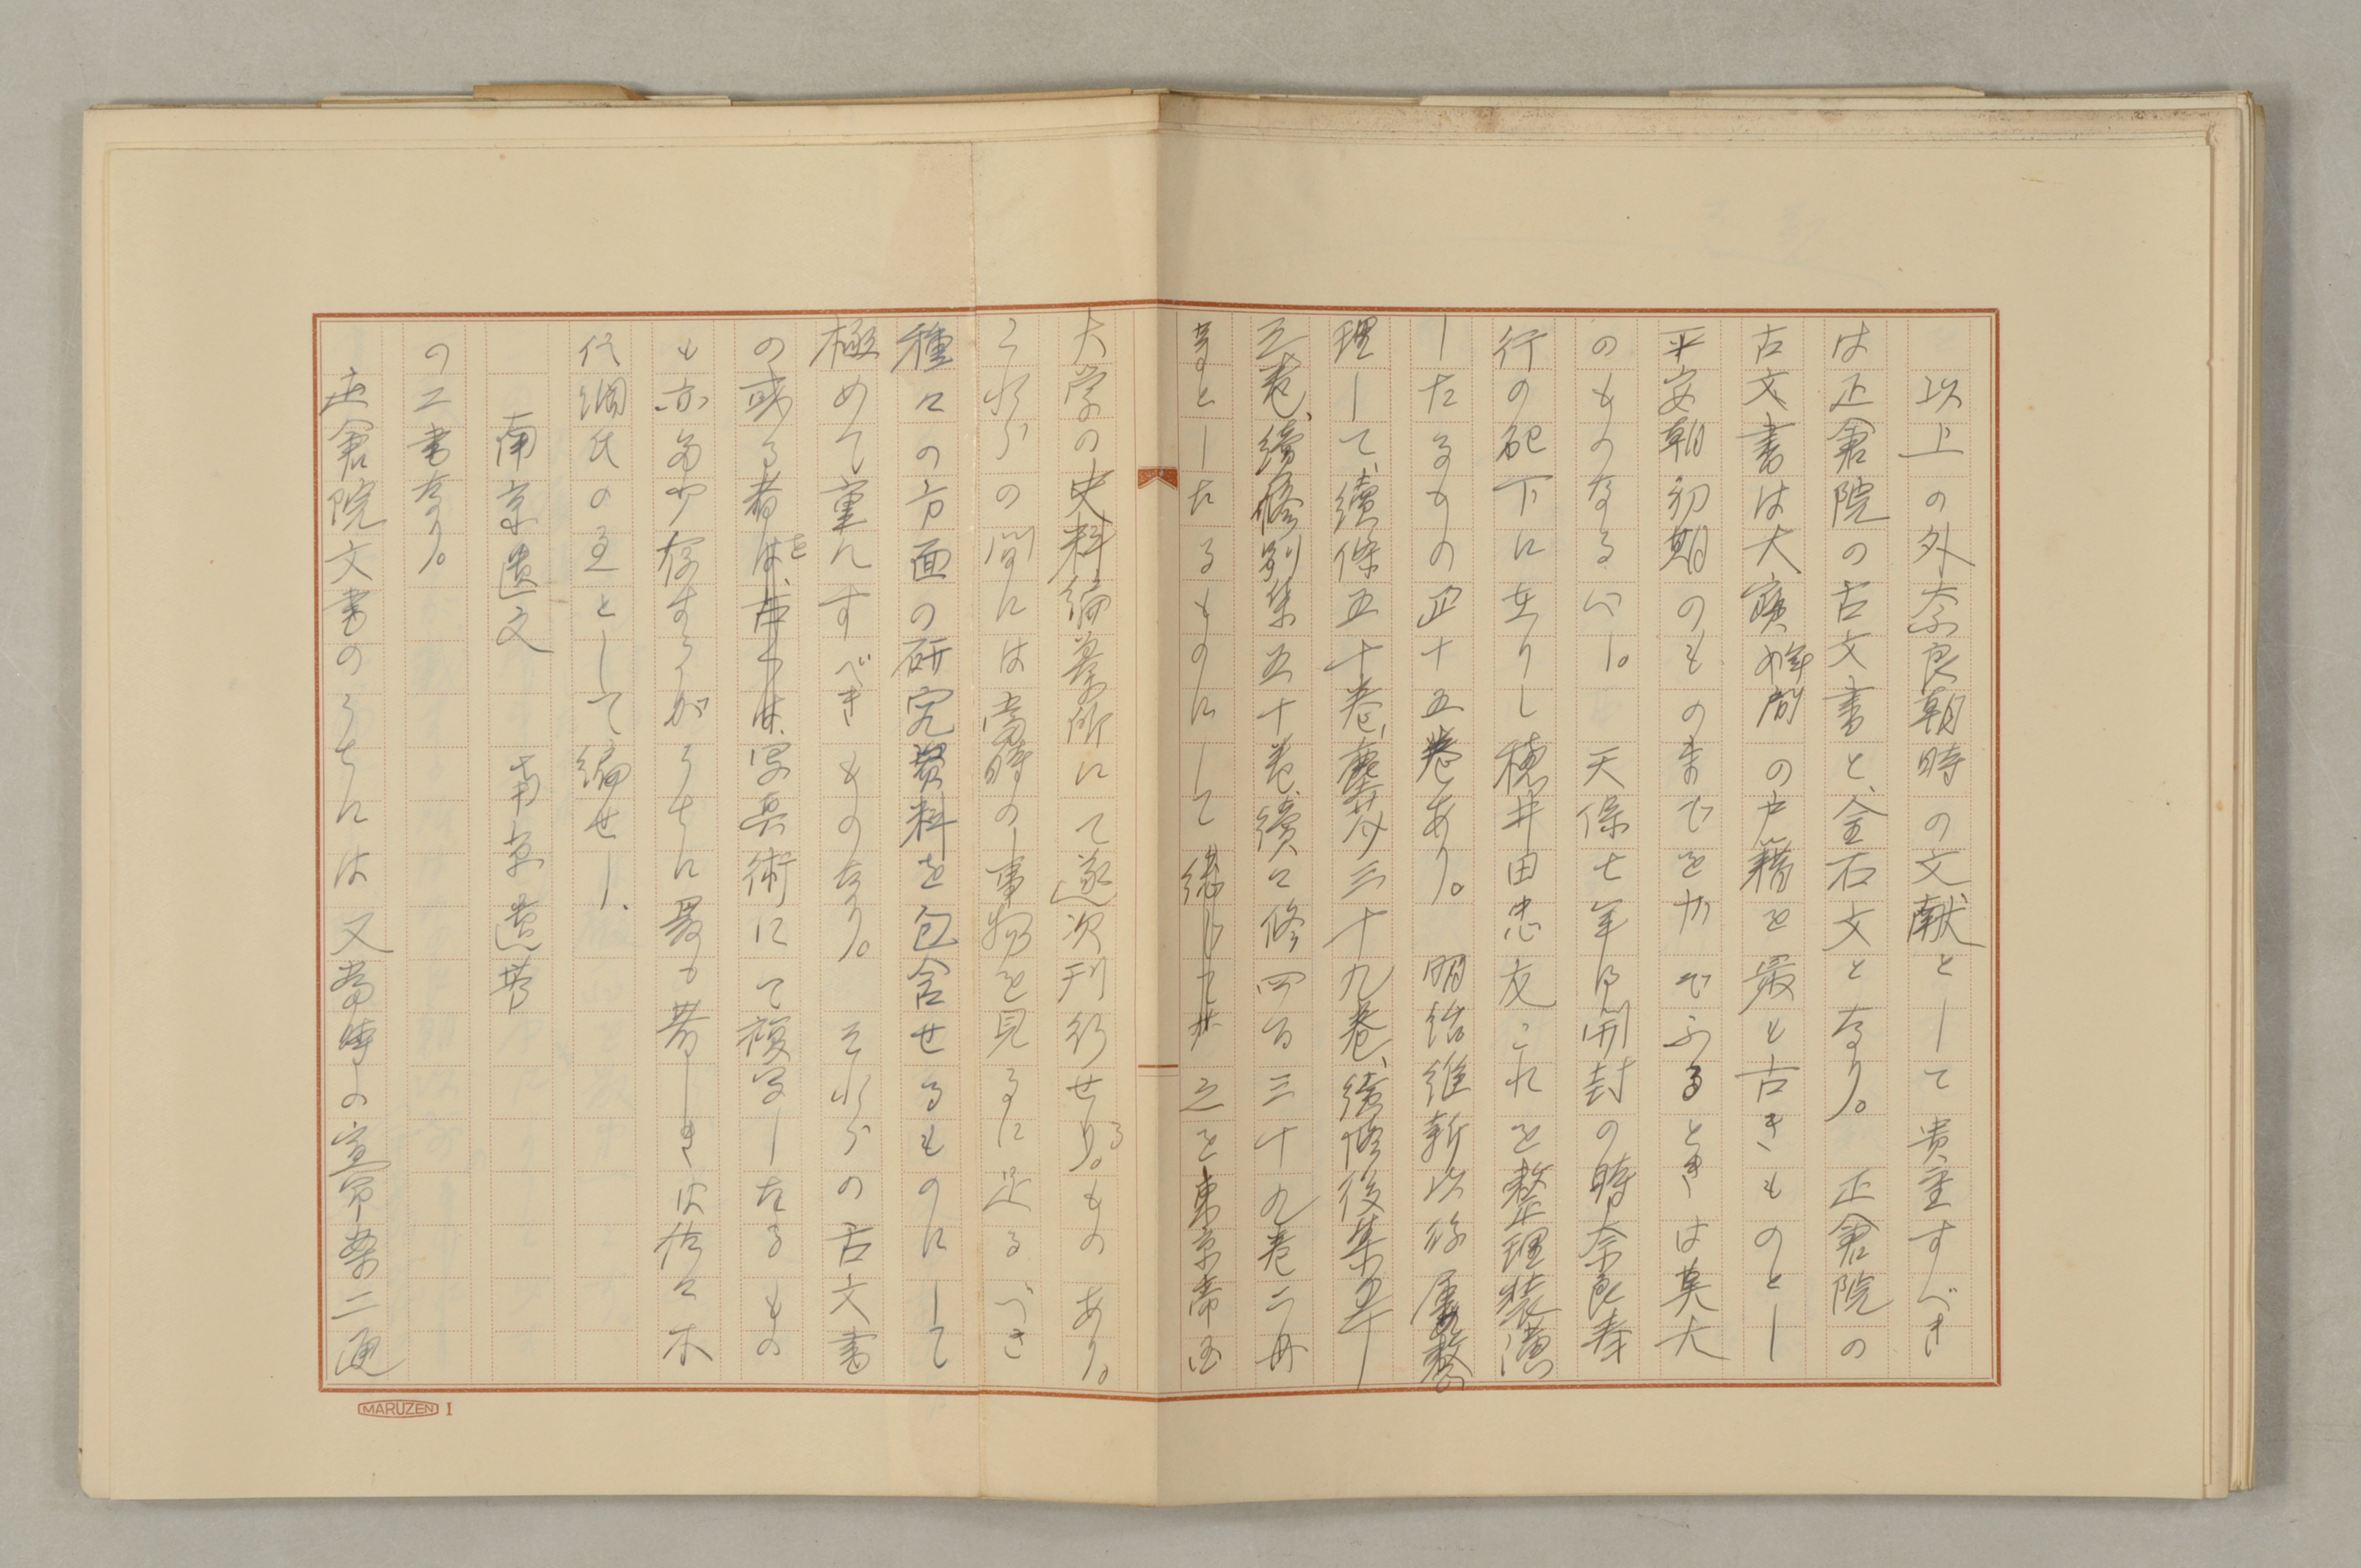 以上の外奈良朝時の文献として貴重すべき
は正倉院の古文書と、金石文となり。正倉院の
古文書は大宝年間の戸籍を最も古きものとし
平安朝初期のものまでを
のものなるべし。天保七年開封の時奈良奉
行の配下に在りし穂井田忠友これを整理装潢
したるもの四十五巻あり。明治維新以後屢整
理して、続修五十巻、塵芥三十九巻、続修後集四十
三巻、続修別集五十巻、続々修四百三十九巻二冊
等としたるものにして 之を東京帝国
大学の史料編纂所にて逐次刊行せるものあり。
これらの間には当時の事物を見るに足るべき
種々の方面の研究資料を包含せるものにして
極めて重んすべきものなり。それらの古文書
の或る者を写真術にて複写したるもの
も亦多少存するがうちに最も著しきは佐々木
信綱氏の として編せし、
南京遺文　南京遺芳
の二書なり。
正倉院文書のうちには又当時の宣命案二通
MARUZEN I